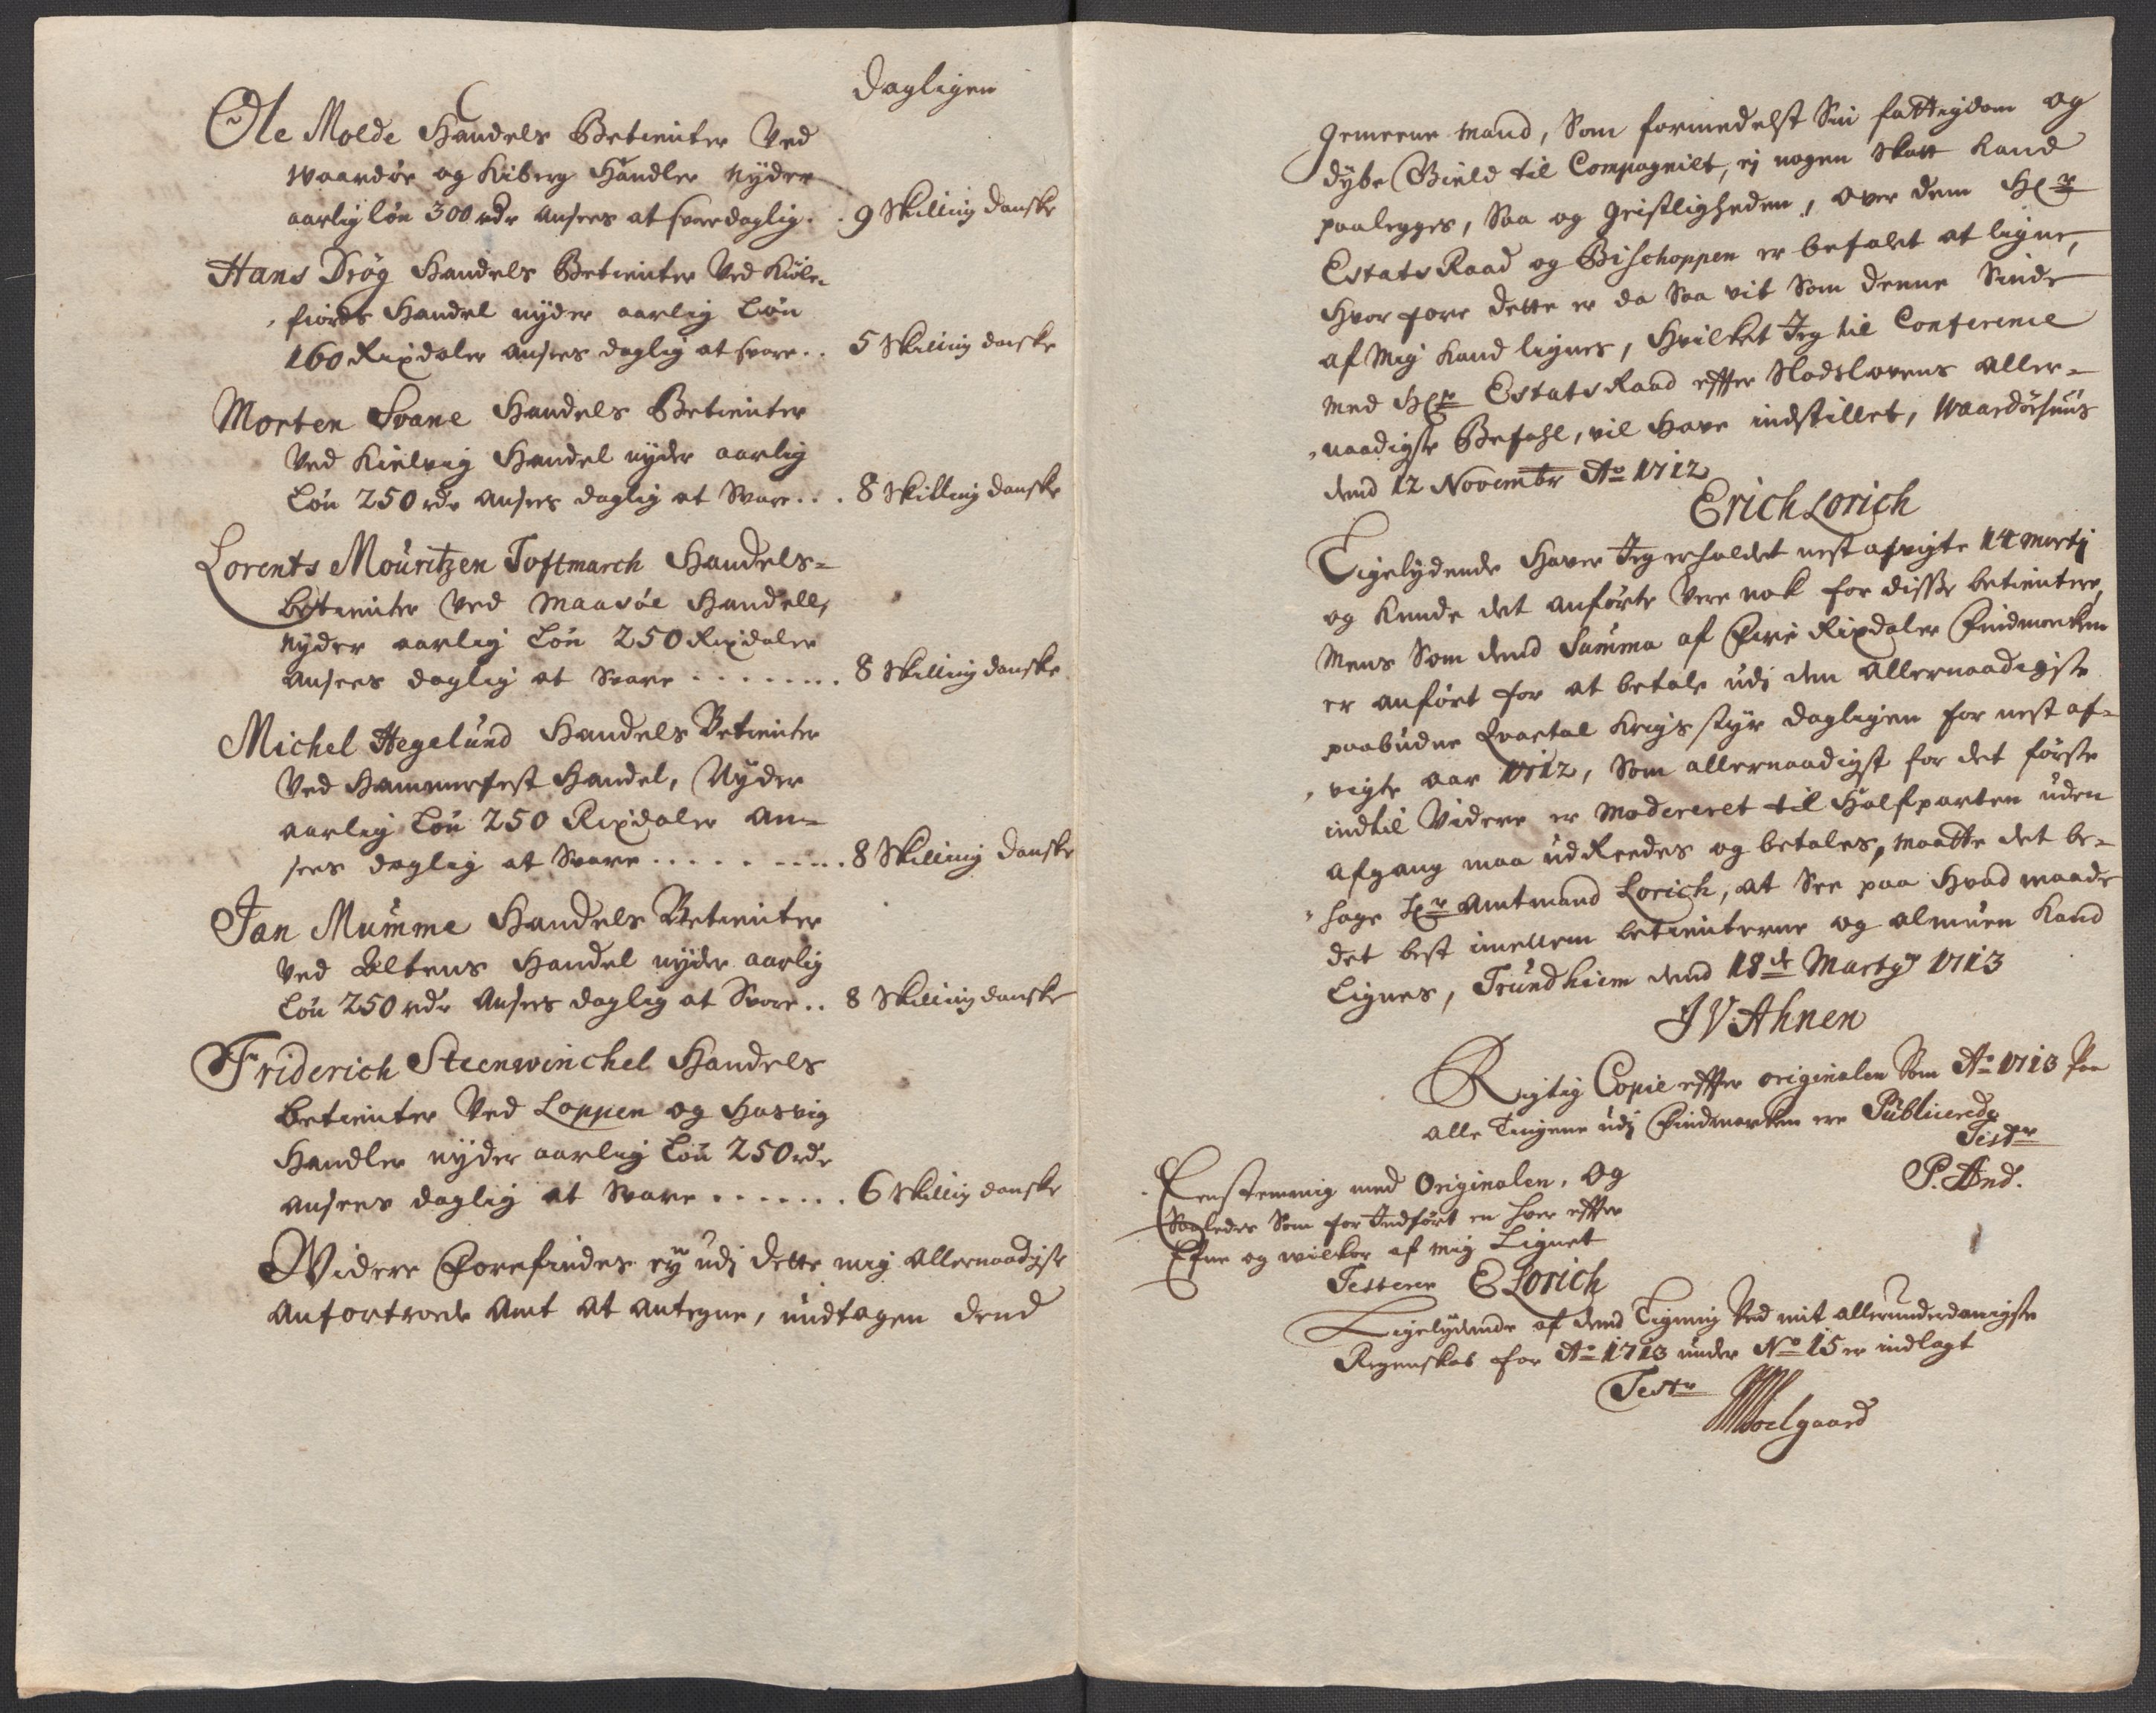 Dagligen
Ole Molde Handels Betienter Ved
Waardøe og Kiberg Handler nyder
aarlig løn 300 rdr ansees at svare daglig . . 9 Skilling danske
Hans Drøg Handels Betienter Ved Kiøle-
fiords Handel nyder aarlig Løn
160 Rixdaler ansees daglig at svare . . 5 Skilling danske
Morten Svane Handels Betienter
Ved Kielvig Handel nyder aarlig
Løn 250 rdr ansees daglig at Svare . . . 8 Skilling danske
Lorents Mouritzen Toftmarch Handels-
Betienter Ved Maasøe Handell,
nyder aarlig Løn 250 Rixdaler
ansees daglig at Svare . . . . . . . . 8 Skilling danske
Michel Hegelund Handels Betienter
Ved Hammerfest Handel, Nyder
aarlig Løn 250 Rixdaler an-
sees daglig at Svare . . . . . . . . . 8 Skilling danske
Jan Mumme Handels Betienter
Ved Altens Handel nyder aarlig
Løn 250 rdr ansees daglig at Svare . . 8 Skilling danske
Friderich Steenwinchel Handels
Betienter Ved Loppen og Hasvig
Handler nyder aarlig Løn 250 rdr
ansees daglig at Svare . . . . . . . 6 Skillig danske
Widere Forefindes ey udj dette mig allernaadigst
anfortroede Amt at antegne, undtagen dend
Gemeene mand, Som formedelst Sin fattigdom og
dybe Gield til Compagniet, ej nogen Skatt kand
paalegges, Saa og Geistligheden, over dem Hr
Estats Raad og Bischoppen er befalet at ligne,
Hvorfore dette er da Saa vit Som denne Sinde
af Mig kand lignes, Hvilket Jeg til Conference
med Hr Estats Raad effter Slodslovens aller-
naadigste Befahl, vil Have indstillet, Waardøehuus
dend 12 Novembr Ao 1712
Erich Lorich
Ligelydende Haver Jeg erholdet nest afvigte 14 Martj
og kunde det anførte Vere nok for disse betientere,
Mens Som dend Summa af Fire Rixdaler Findmarken
er anført for at betale udj den allernaadigste
paabudne Qvartal Krigs styr dagligen for nest af-
vigte aar 1712, Som allernaadigst for det første
indtil Videre er Modereret til Halfparten uden
afgang maa udReedes og betales, maatte det be-
hage Hr Amtmand Lorich, at See paa Hvad maade
det best imellem betienterne og almuen kand
Lignes, Trundhiem dend 18de Martij 1713
J V Ahnen
Rigtig Copie effter originalen Som Ao 1713 Paa
alle Tingene udj Findmarken ere Publicerede
Testr
P. And.
Eenstemmig med Originalen, og
Saaledes Som for Indført en hver effter
Efne og wilkor af mig Lignet
Testerer E Lorich
Ligelydende af dend Ligning Ved mit allerunderdanigste
Regenskab for Ao 1713 under No 15 er indlagt
Testr
Woelgaard